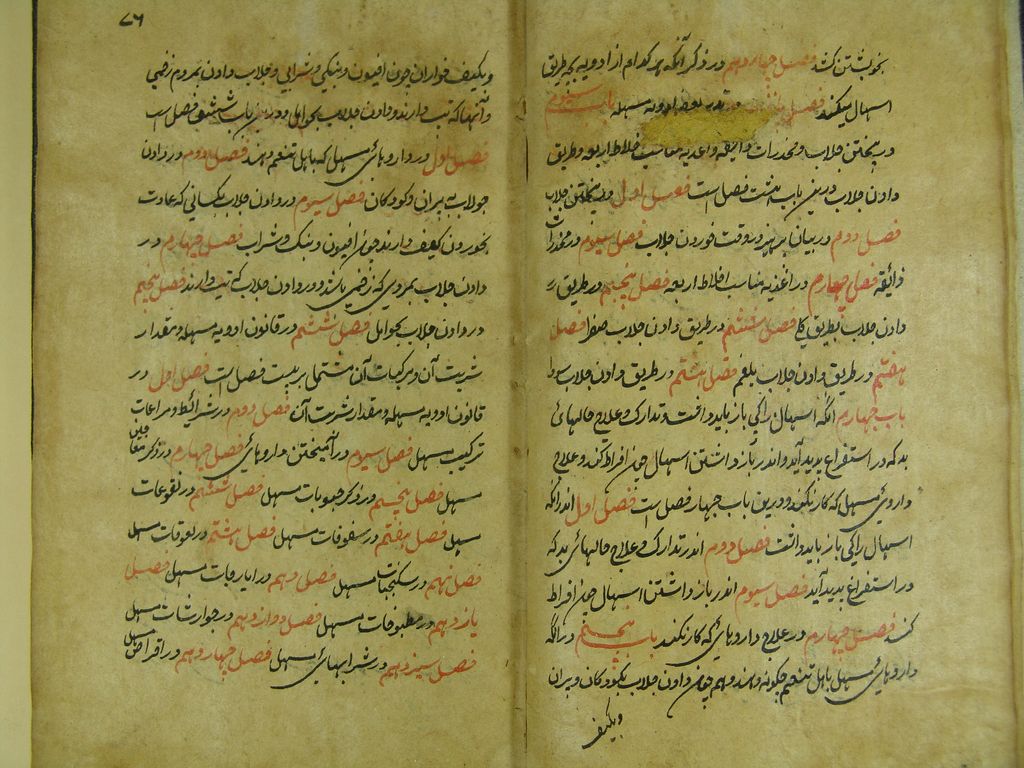 بخویشتن کشد فصل چهاردهم در ذکر آنکه هر کدام از ادویه بچه طریق
اسهال میکند فصل ادویه مسهله باب سیوم
در پختن جلاب و مخدرات ذایقه و اغذیه مناسب اخلاط اربعه و طریق
دادن جلاب درین باب هشت فصل است فصل اول در پختن جلاب
فصل دوم در بیان پرهیز در وقت خوردن جلاب فصل سیوم در مخدرات
ذائقه فصل چهارم در اغذیه مناسب اخلاط اربعه فصل پنجم در طریق
دادن جلاب بطریق کلی فصل ششم در طریق دادن جلاب صفرا فصل
هفتم در طریق دادن جلاب بلغم فصل هشتم در طریق دادن جلاب سودا
باب چهارم آنکه اسهال را کی باز باید داشت و تدارک و علاج حالهائ
بد که در استفراغ پدید آید و اندر باز داشتن اسهال چون افراط کند و علاج
داروئ مسهل که کار نکند و درین باب چهار فصل است فصل اول اندر آنکه
اسهال را کی باز باید داشت فصل دوم اندر تدارک و علاج حالهائی بد که
در استفراغ پدید آید فصل سیوم اندر باز داشتن اسهال چون افراط
کند فصل چهارم در علاج داروهائی که کار نکند باب پنجم در آنکه
داروهائی مسهل باهل تنعم چگونه دهند و هم چون دادن جلاب بکودکان و پیران
و بکیف
۷۶
و بکیف خواران چون افیون و بنگی و شرابی و جلاب دادن بمردم زخمی
و آنها که تب دارند و دادن جلاب بحوامل و درین باب شش فصل است
فصل اول در داروهائی مسهل که باهل تنعم دهند فصل دوم در دادن
جولاب به پیران و کودکان فصل سیوم در دادن جلاب بکسانی که عادت
بخوردن کیف دارند چون افیون و بنک و شراب فصل چهارم در
دادن جلاب بمردمی که زخمی باشند و در دادن جلاب که تب دارند فصل پنجم
در دادن جلاب بحوامل فصل ششم در قانون ادویه مسهله و مقدار
شربت آن و مرکبات آن مشتمل بر بیست فصل است فصل اول در
قانون ادویه مسهله و مقدار شربت آن فصل دوم در شرائط و مراعات
ترکیب مسهل فصل سیوم در آمیختن داروهائی فصل چهارم در ذکر معاجین
مسهل فصل پنجم در ذکر حبوبات مسهل فصل ششم در لقوعات
مسهل فصل هفتم در سفوفات مسهل فصل هشتم در لعوقات مسهل
فصل نهم در سکنجبینات مسهل فصل دهم در ایارجات مسهل فصل
یازدهم در مطبوخات مسهل فصل دوازدهم در جوارشات مسهل
فصل سیزدهم در شرابهائی مسهل فصل چهاردهم در اقراص مسهل